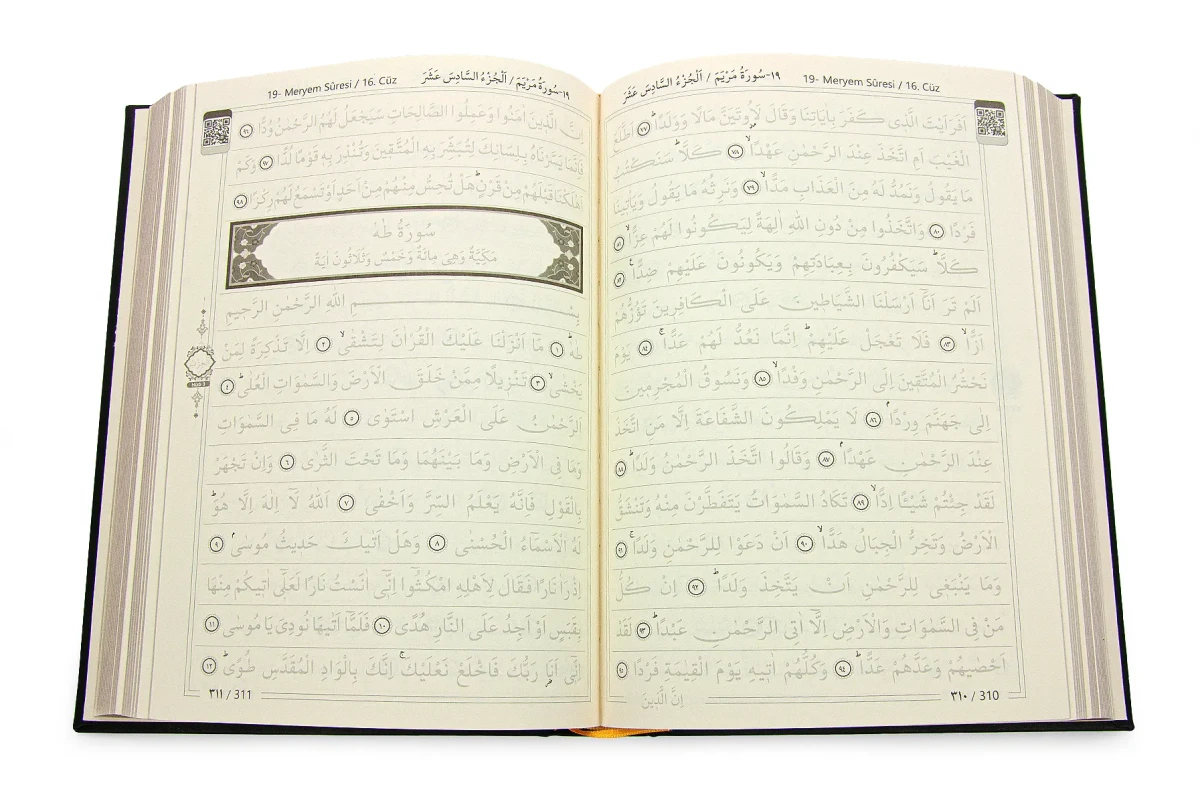 19- Meryem Sûresi / 16. Cüz ١٩-سُورَةُ مَرْيَمَ / اَلْجُزْءُ السَّادِسَ عَشَرَ
اَفَرَاَيْتَ الَّذٖى كَفَرَ بِاٰيَاتِنَا وَقَالَ لَاُوتَيَنَّ مَالًا وَوَلَدًاؕ ﴿٧٧﴾ اَطَّلَعَ
الْغَيْبَ اَمِ اتَّخَذَ عِنْدَ الرَّحْمٰنِ عَهْدًاۙ ﴿٧٨﴾ كَلَّاؕ سَنَكْتُبُ
مَا يَقُولُ وَنَمُدُّ لَهُ مِنَ الْعَذَابِ مَدًّاۙ ﴿٧٩﴾ وَنَرِثُهُ مَا يَقُولُ وَيَاْتٖينَا
فَرْدًا ﴿٨٠﴾ وَاتَّخَذُوا مِنْ دُونِ اللّٰهِ اٰلِهَةً لِيَكُونُوا لَهُمْ عِزًّاۙ ﴿٨١﴾
كَلَّاؕ سَيَكْفُرُونَ بِعِبَادَتِهِمْ وَيَكُونُونَ عَلَيْهِمْ ضِدًّا ﴿٨٢﴾
اَلَمْ تَرَ اَنَّٓا اَرْسَلْنَا الشَّيَاطٖينَ عَلَى الْكَافِرٖينَ تَؤُزُّهُمْ
اَزًّاۙ ﴿٨٣﴾ فَلَا تَعْجَلْ عَلَيْهِمْؕ اِنَّمَا نَعُدُّ لَهُمْ عَدًّاۚ ﴿٨٤﴾ يَوْمَ
نَحْشُرُ الْمُتَّقٖينَ اِلَى الرَّحْمٰنِ وَفْدًاۙ ﴿٨٥﴾ وَنَسُوقُ الْمُجْرِمٖينَ
اِلٰى جَهَنَّمَ وِرْدًاۘ ﴿٨٦﴾ لَا يَمْلِكُونَ الشَّفَاعَةَ اِلَّا مَنِ اتَّخَذَ
عِنْدَ الرَّحْمٰنِ عَهْدًاۘ ﴿٨٧﴾ وَقَالُوا اتَّخَذَ الرَّحْمٰنُ وَلَدًاؕ ﴿٨٨﴾
لَقَدْ جِئْتُمْ شَيْـًٔا اِدًّاۙ ﴿٨٩﴾ تَكَادُ السَّمٰوَاتُ يَتَفَطَّرْنَ مِنْهُ وَتَنْشَقُّ
الْاَرْضُ وَتَخِرُّ الْجِبَالُ هَدًّاۙ ﴿٩٠﴾ اَنْ دَعَوْا لِلرَّحْمٰنِ وَلَدًاۚ ﴿٩١﴾
وَمَا يَنْبَغٖى لِلرَّحْمٰنِ اَنْ يَتَّخِذَ وَلَدًاؕ ﴿٩٢﴾ اِنْ كُلُّ
مَنْ فِى السَّمٰوَاتِ وَالْاَرْضِ اِلَّٓا اٰتِى الرَّحْمٰنِ عَبْدًاؕ ﴿٩٣﴾ لَقَدْ
اَحْصٰيهُمْ وَعَدَّهُمْ عَدًّاؕ ﴿٩٤﴾ وَكُلُّهُمْ اٰتٖيهِ يَوْمَ الْقِيٰمَةِ فَرْدًا ﴿٩٥﴾
اِنَّ الَّذٖينَ
٣١٠ / 310
19- Meryem Sûresi / 16. Cüz ١٩-سُورَةُ مَرْيَمَ / اَلْجُزْءُ السَّادِسَ عَشَرَ
اِنَّ الَّذٖينَ اٰمَنُوا وَعَمِلُوا الصَّالِحَاتِ سَيَجْعَلُ لَهُمُ الرَّحْمٰنُ وُدًّا ﴿٩٦﴾
فَاِنَّمَا يَسَّرْنَاهُ بِلِسَانِكَ لِتُبَشِّرَ بِهِ الْمُتَّقٖينَ وَتُنْذِرَ بِهٖ قَوْمًا لُدًّا ﴿٩٧﴾ وَكَمْ
اَهْلَكْنَا قَبْلَهُمْ مِنْ قَرْنٍؕ هَلْ تُحِسُّ مِنْهُمْ مِنْ اَحَدٍ اَوْ تَسْمَعُ لَهُمْ رِكْزًا ﴿٩٨﴾
سُورَةُ طٰهٰ
مَكِّيَّةٌ وَهِىَ مِائَةٌ وَخَمْسٌ وَثَلَاثُونَ اٰيَةً
بِسْمِ اللّٰهِ الرَّحْمٰنِ الرَّحٖيمِ
طٰهٰؕ ﴿١﴾ مَٓا اَنْزَلْنَا عَلَيْكَ الْقُرْاٰنَ لِتَشْقٰىۙ ﴿٢﴾ اِلَّا تَذْكِرَةً لِمَنْ
يَخْشٰىۙ ﴿٣﴾ تَنْزٖيلًا مِمَّنْ خَلَقَ الْاَرْضَ وَالسَّمٰوَاتِ الْعُلٰىؕ ﴿٤﴾
اَلرَّحْمٰنُ عَلَى الْعَرْشِ اسْتَوٰى ﴿٥﴾ لَهُ مَا فِى السَّمٰوَاتِ
وَمَا فِى الْاَرْضِ وَمَا بَيْنَهُمَا وَمَا تَحْتَ الثَّرٰى ﴿٦﴾ وَاِنْ تَجْهَرْ
بِالْقَوْلِ فَاِنَّهُ يَعْلَمُ السِّرَّ وَاَخْفٰى ﴿٧﴾ اَللّٰهُ لَٓا اِلٰهَ اِلَّا هُوَؕ
لَهُ الْاَسْمَٓاءُ الْحُسْنٰى ﴿٨﴾ وَهَلْ اَتٰيكَ حَدٖيثُ مُوسٰىۘ ﴿٩﴾
اِذْ رَاٰ نَارًا فَقَالَ لِاَهْلِهِ امْكُثُٓوا اِنّٖٓى اٰنَسْتُ نَارًا لَعَلّٖٓى اٰتٖيكُمْ مِنْهَا
بِقَبَسٍ اَوْ اَجِدُ عَلَى النَّارِ هُدًى ﴿١٠﴾ فَلَمَّٓا اَتٰيهَا نُودِىَ يَا مُوسٰى ﴿١١﴾
اِنّٖٓى اَنَا۬ رَبُّكَ فَاخْلَعْ نَعْلَيْكَۚ اِنَّكَ بِالْوَادِ الْمُقَدَّسِ طُوًىؕ ﴿١٢﴾
٣١١ / 311